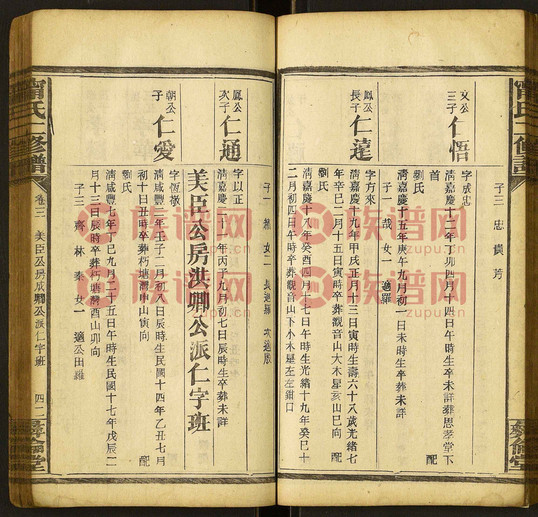 子三 忠 貴 芳
文公三子 仁悟
字成忠
清嘉慶二十二年丁卯四月十四日辰時生卒葬思孝堂下首 配
劉氏
清嘉慶十五年庚午九月初一日未時生卒葬未詳
子一 哉 女一 適羅
鳳公長子 仁達
字方來
清嘉慶十九年甲戌正月十三日寅時生壽六十八歲光緒七年辛巳二月十五日寅時卒葬觀音山大木星亥山巳向 配
劉氏
清嘉慶十八年癸酉四月十七日辰時生光緒十九年癸巳十二月初四日午時卒葬觀音山下小木星左左鉗口
子一 女二 長適羅 次適殷
鳳公次子 仁通
字以正
清嘉慶二十一年丙子九月初七日辰時生卒葬未詳
美臣公房洪卿公派仁字班
朝公子 仁愛
字恆敬
清咸豐三年壬子二月初八日辰時生民國十四年乙丑七月初十日丑時卒葬朽塘灣中山寅向 配
劉氏
清咸豐七年丁巳九月二十五日午時生民國十七年戊辰二月十三日辰時卒葬朽塘灣酉山卯向
子三 齊 林 泰 女一 適公田羅
甯氏 修譜
卷三 美臣公房成卿公派仁字班
四二
彝倫堂
族谱网
zupu.cn